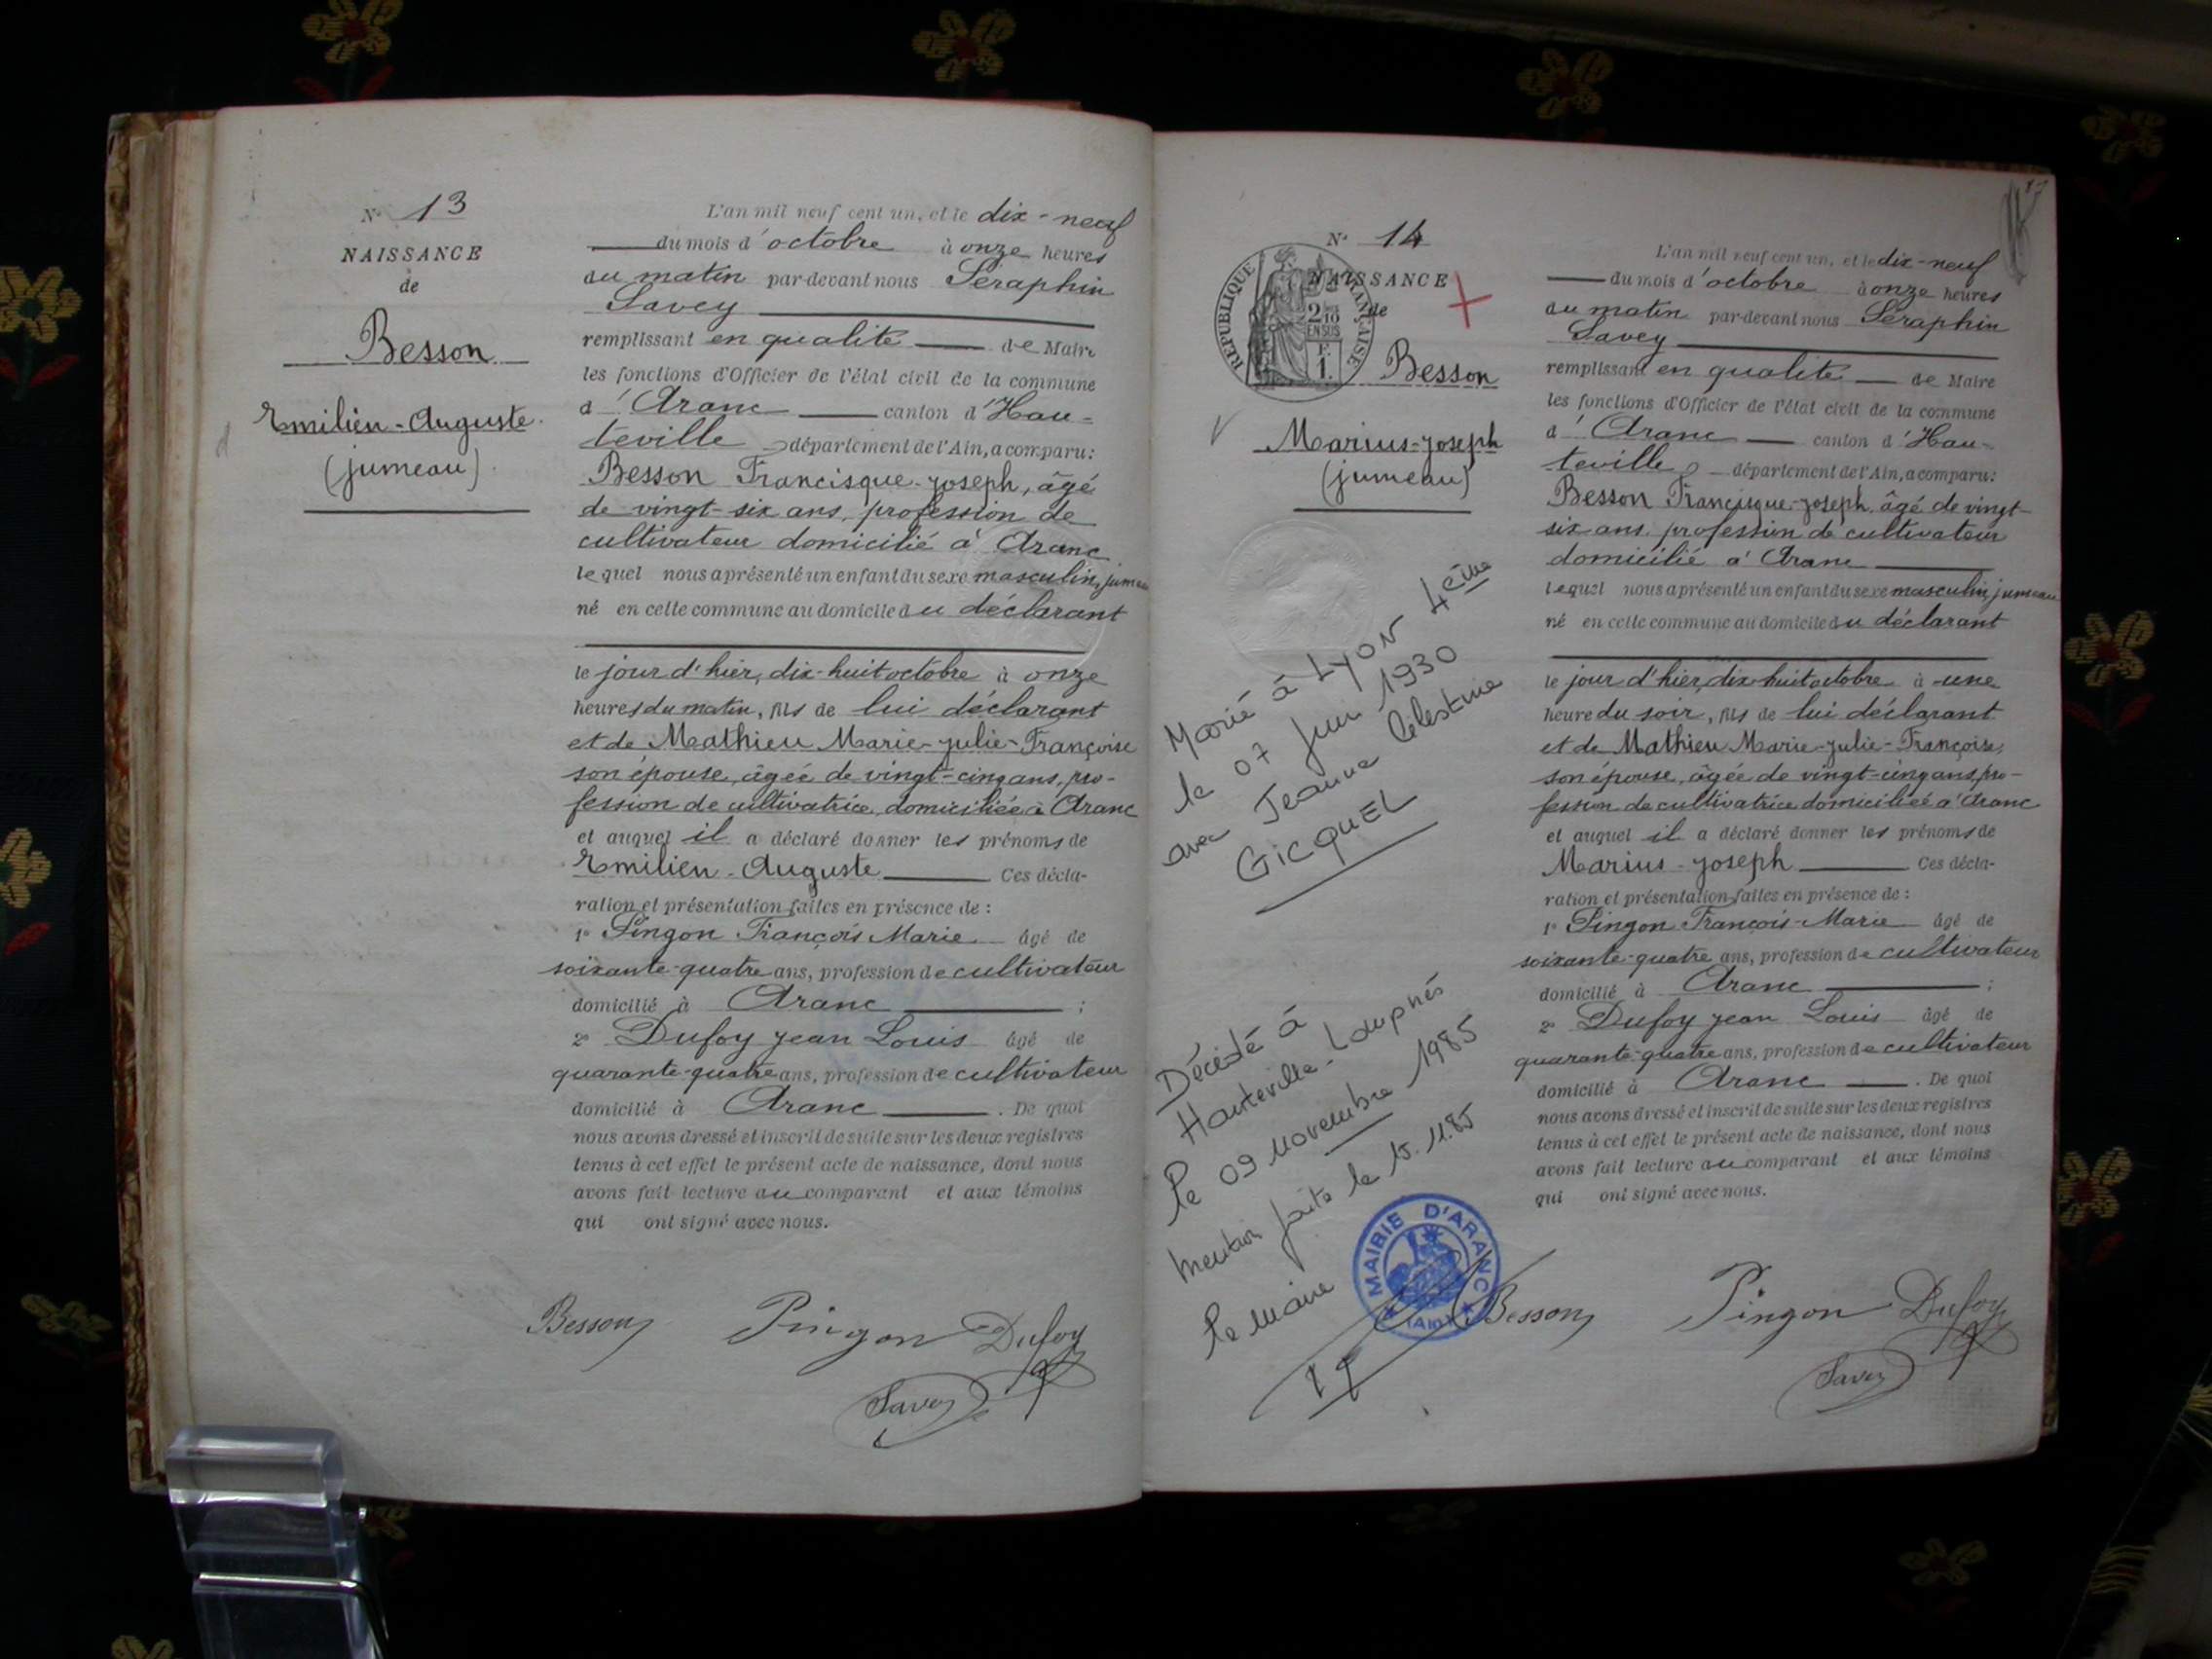 N° 13
NAISSANCE
de
Besson
Emilien-Auguste
(jumeau)
L'an mil neuf cent un, et le dix-neuf
du mois d'octobre à onze heures
du matin par-devant nous Séraphin
Savey
remplissant en qualité de Maire
les fonctions d'Officier de l'état civil de la commune
d'Aranc canton d'Hau-
teville département de l'Ain, a comparu:
Besson Francisque-Joseph, âgé
de vingt-six ans, profession de
cultivateur domicilié à Aranc
lequel nous a présenté un enfant du sexe masculin, jumeau
né en cette commune au domicile du déclarant
le jour d'hier, dix-huit octobre à onze
heures du matin, fils de lui déclarant
et de Mathieu Marie-Julie-Françoise
son épouse, âgée de vingt-cinq ans, pro-
fession de cultivatrice, domiciliée à Aranc
et auquel il a déclaré donner les prénoms de
Emilien-Auguste Ces décla-
ration et présentation faites en présence de :
1° Pingon François Marie âgé de
soixante-quatre ans, profession de cultivateur
domicilié à Aranc ;
2° Dufoy Jean Louis âgé de
quarante-quatre ans, profession de cultivateur
domicilié à Aranc . De quoi
nous avons dressé et inscrit de suite sur les deux registres
tenus à cet effet le présent acte de naissance, dont nous
avons fait lecture au comparant et aux témoins
qui ont signé avec nous.
Besson Pingon Dufoy
Savey
N° 14
NAISSANCE
de
REPUBLIQUE FRANÇAISE
2/10
EN SUS
F.
1.
Besson
Marius-Joseph
(jumeau)
Marié à Lyon 4ème
le 07 Juin 1930
avec Jeanne Célestine
GICQUEL
Décédé à
Hauteville-Lompnés
le 09 novembre 1985
Mention faite le 15.11.85
Le Maire
MAIRIE D'ARANC
(Ain)
17
L'an mil neuf cent un, et le dix-neuf
du mois d'octobre à onze heures
du matin par-devant nous Séraphin
Savey
remplissant en qualité de Maire
les fonctions d'Officier de l'état civil de la commune
d'Aranc canton d'Hau-
teville département de l'Ain, a comparu:
Besson Francisque-Joseph âgé de vingt-
six ans, profession de cultivateur
domicilié à Aranc
lequel nous a présenté un enfant du sexe masculin, jumeau
né en cette commune au domicile du déclarant
le jour d'hier, dix-huit octobre à une
heure du soir, fils de lui déclarant
et de Mathieu Marie-Julie-Françoise,
son épouse, âgée de vingt-cinq ans, pro-
fession de cultivatrice domiciliée à Aranc
et auquel il a déclaré donner les prénoms de
Marius-Joseph Ces décla-
ration et présentation faites en présence de :
1° Pingon François-Marie âgé de
soixante-quatre ans, profession de cultivateur
domicilié à Aranc ;
2° Dufoy Jean Louis âgé de
quarante-quatre ans, profession de cultivateur
domicilié à Aranc . De quoi
nous avons dressé et inscrit de suite sur les deux registres
tenus à cet effet le présent acte de naissance, dont nous
avons fait lecture au comparant et aux témoins
qui ont signé avec nous.
Besson Pingon Dufoy
Savey